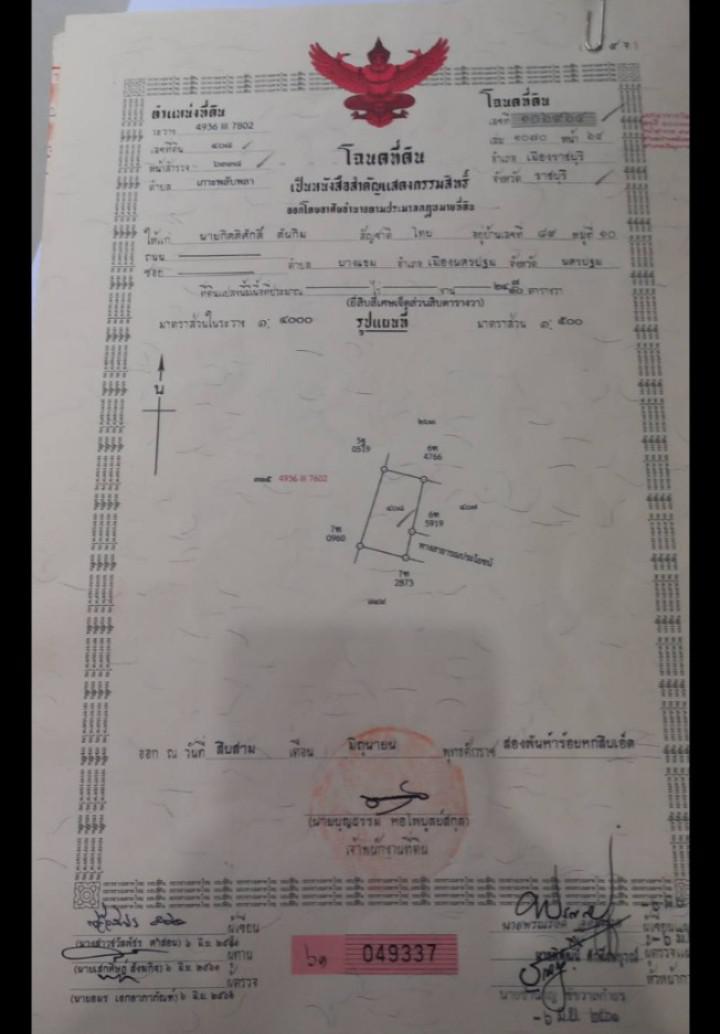 ตำแหน่งที่ดิน
ระวาง 4936 III 7802
เลขที่ดิน ๔๐๘
หน้าสำรวจ ๒๓๓๘
ตำบล เกาะพลับพลา
โฉนดที่ดิน
เลขที่ ๑๐๖๙๖๔
เล่ม ๑๐๗๐ หน้า ๖๔
อำเภอ เมืองราชบุรี
จังหวัด ราชบุรี
โฉนดที่ดิน
เป็นหนังสือสำคัญแสดงกรรมสิทธิ์
ออกโดยอาศัยอำนาจตามประมวลกฎหมายที่ดิน
ให้แก่ นายกิตติศักดิ์ ตันกิม สัญชาติ ไทย อยู่บ้านเลขที่ ๘๙ หมู่ที่ ๑๐
ถนน
ซอย ตำบล บางแขม อำเภอ เมืองนครปฐม จังหวัด นครปฐม
ที่ดินแปลงนี้มีเนื้อที่ประมาณ ไร่ งาน ตารางวา
(ยี่สิบสี่เศษเจ็ดส่วนสิบตารางวา)
มาตราส่วนในระวาง ๑: ๔๐๐๐ รูปแผนที่ มาตราส่วน ๑: ๕๐๐
น
5ฐ
0519
6ฑ
4766
4936 III 7602
๔๐๘
6ฑ
5919
๔๐๗
7ฑ
0960
ทางสาธารณประโยชน์
7ฑ
2873
ออก ณ วันที่ สิบสาม เดือน มิถุนายน พุทธศักราช สองพันห้าร้อยหกสิบเอ็ด
(นายบุญธรรม หอไพบูลย์สกุล)
เจ้าพนักงานที่ดิน
ผู้เขียน
ผู้ทาน
ผู้ตรวจ
๖๑ 049337
-๖ มิ.ย. ๒๕๖๑